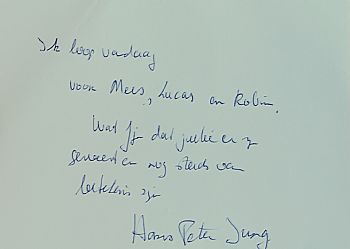 Ik loop vandaag
voor Mees, Lucas en Robin.
Wat fijn dat jullie er zijn
geweest en nog steeds van
betekenis zijn
Hans Peter Jung